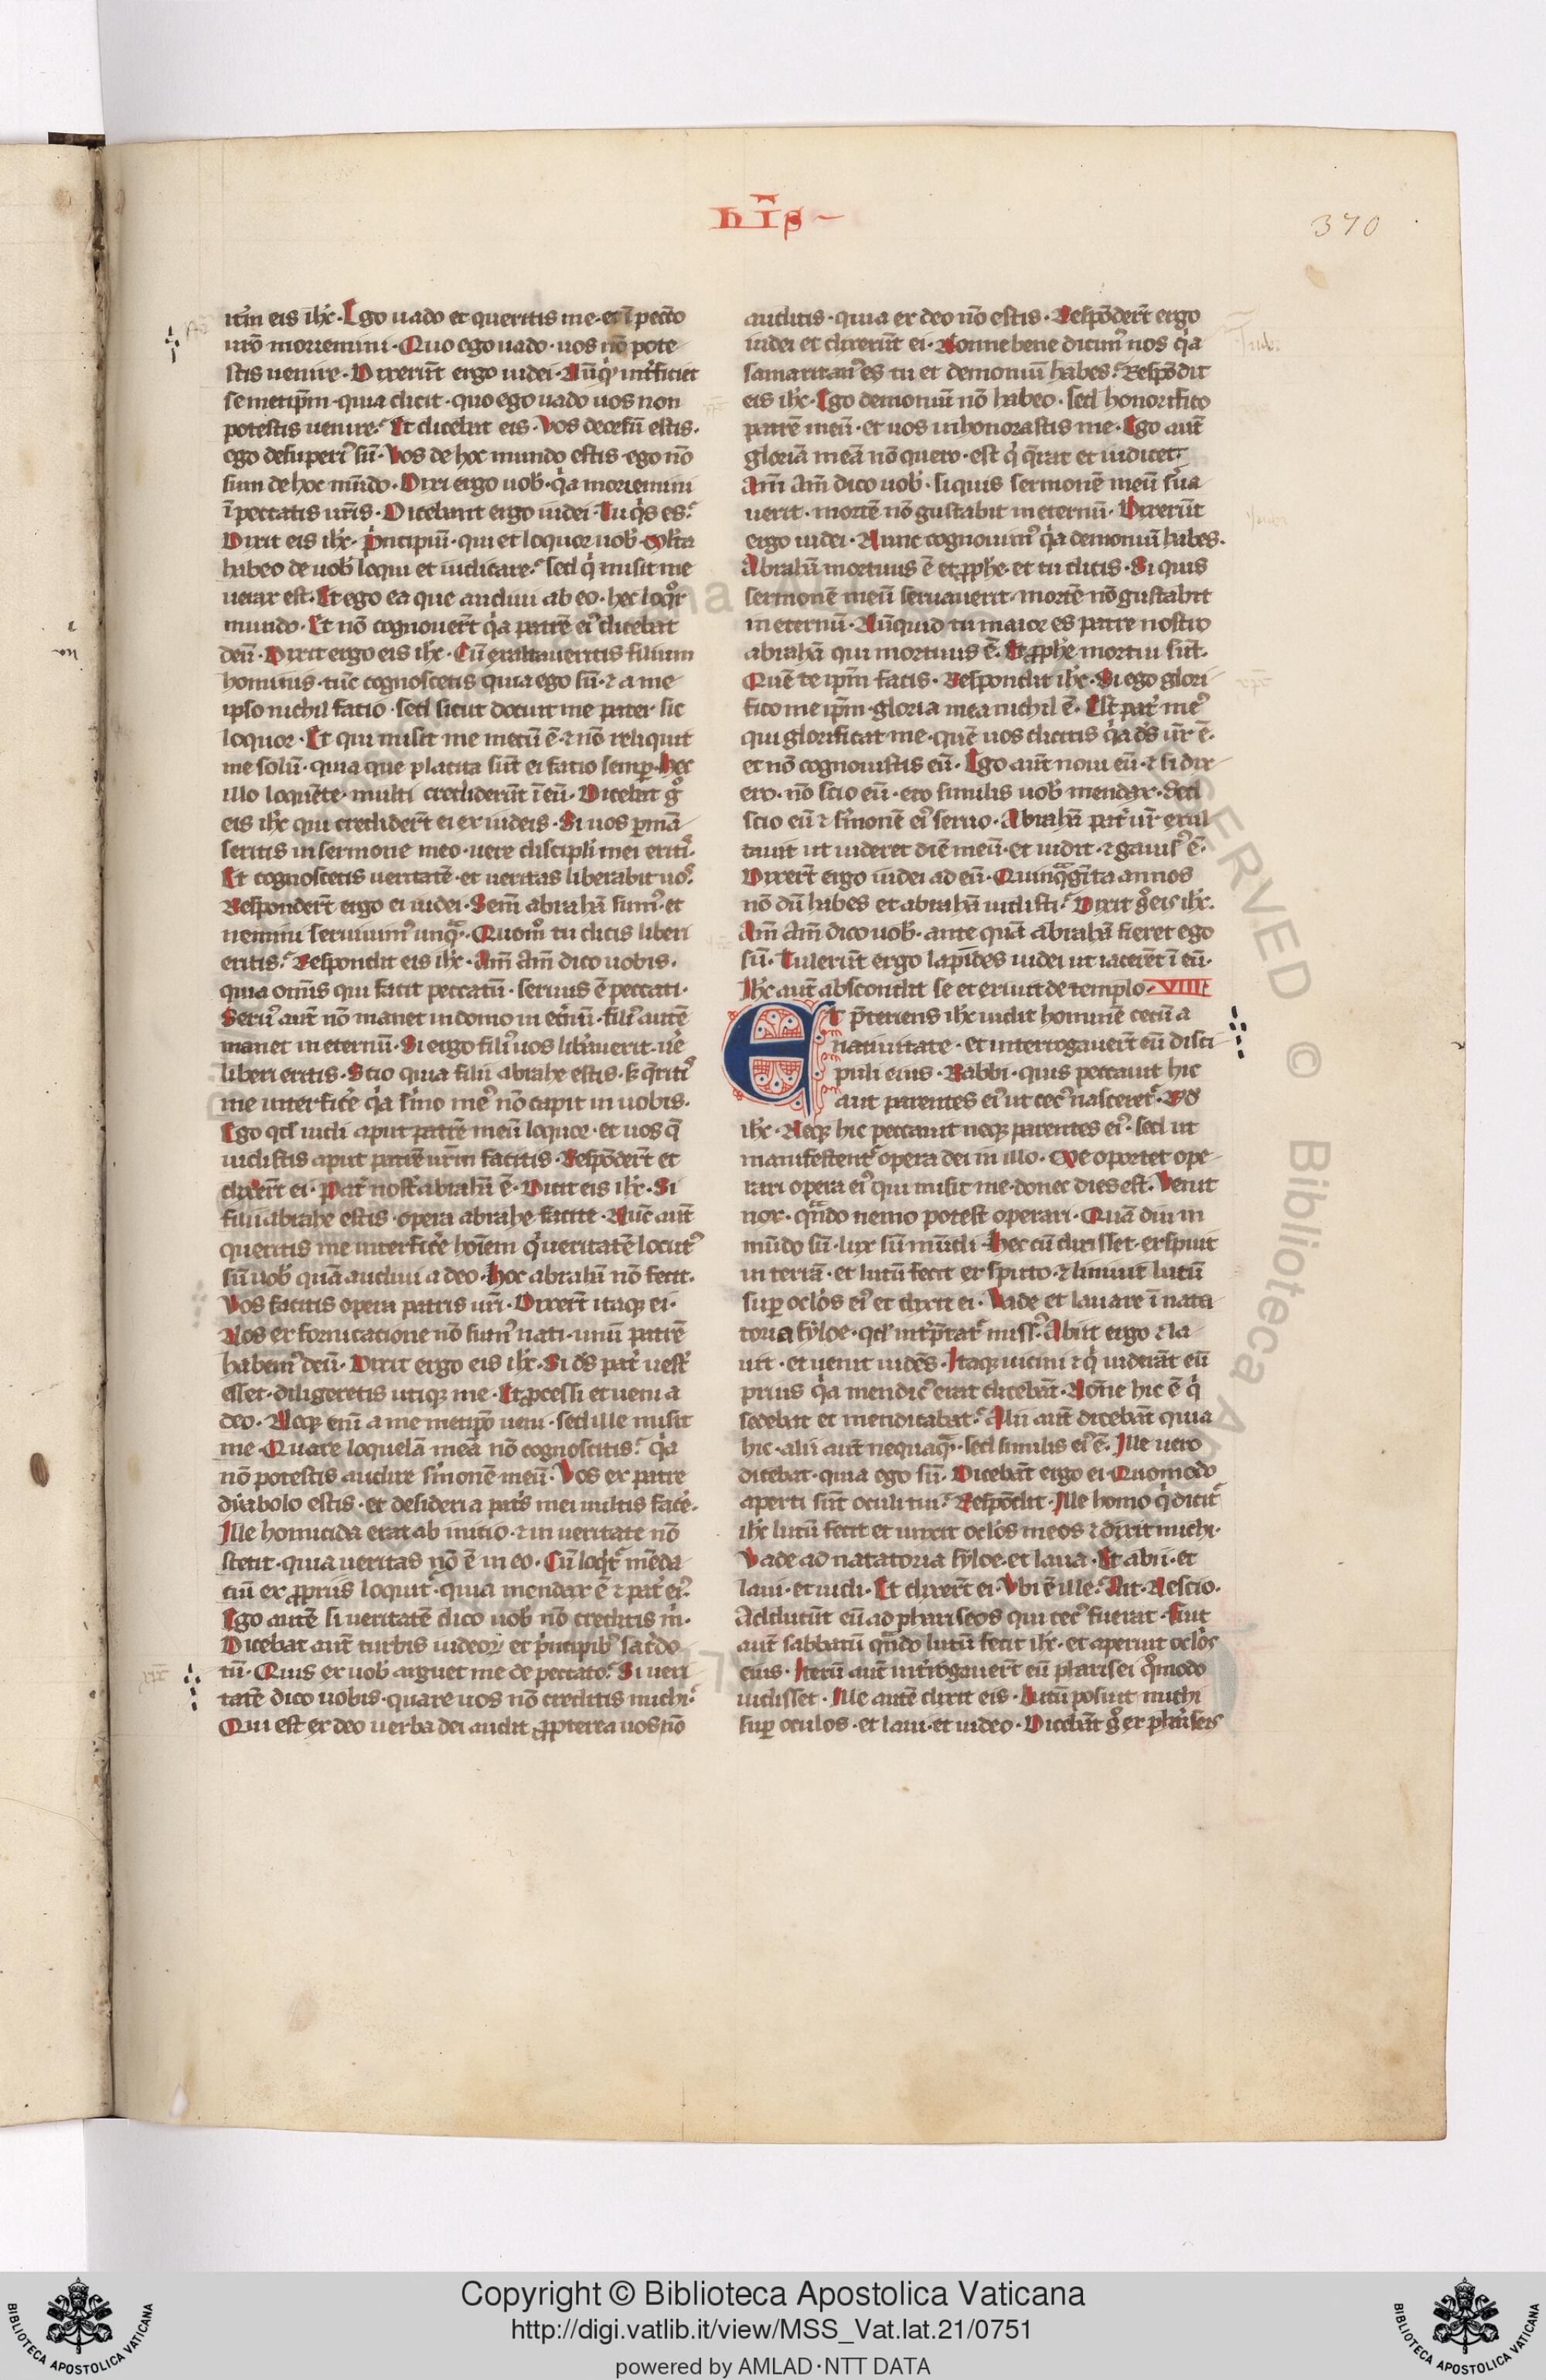 hīs
370
it̾m eis ih̾c · Ego uado et queritis me · et ī pecc̄o
ur̄o moriemini · Quo ego uado · uos nō pote
stis uenire · Dixerūt ergo iudei · Nūq̾ int̾ficiet
semetip̄m · quia dicit · quo ego uado uos non
potestis uenire? Et dicebat eis · Vos deorsū estis ·
ego desuper̾ sū · Vos de hoc mundo estis · ego nō
sum de hoc mūdo · Dixi ergo uob̾ · q̾a moriemini
ī peccatis ur̄is · Dicebant ergo iudei · Tu q̾s es?
Dixit eis ih̾c · P̾ncipiū · qui et loquor uob̾ · Mlta
habeo de uob̾ loqui et iudicare? sed q̾ misit me
uerax est · Et ego ea que audiui ab eo · hec loq̾r
mundo · Et nō cognouer̄t q̾a patrē ei᾿ dicebat
deū · Dixit ergo eis ih̾c · Cū exaltaueritis filium
hominis · tūc cognoscetis quia ego sū · ⁊ a me
ipso nichil facio · sed sicut docuit me pater sic
loquor · Et qui misit me mecū ē · ⁊ nō reliquit
me solū · quia que placita sūt ei facio semꝑ · Hec
illo loquēte · multi crediderūt ī eū · Dicebat g̾
eis ih̾c qui credider̄t ei ex iudeis · Si uos ꝑmā
seritis in sermone meo · uere discipli mei erit᾿
Et cognoscetis ueritatē · et ueritas liberabit uo᾿
Responder̄t ergo ei iudei · Sem̄ abrahā sum᾿ · et
nemini seruiuim᾿ unq̾ · Quom̊ tu dicis liberi
eritis? Respondit eis ih̾c · Am̄ am̄ dico uobis ·
quia om̄is qui facit peccatū · seruus ē peccati ·
Seru᾿ aut̄ nō manet in domo in et̾nū · fili᾿ autē
manet in eternū · Si ergo fili᾿ uos lib̾auerit · ue̾
liberi eritis · Scio quia filii abrahe estis · s̾ q̄riti᾿
me interfice̾ q̾a s̾mo me᾿ nō capit in uobis ·
Ego qd̾ uidi aput patrē meū loquor · et uos q̄
uidistis aput patrē ur̄m facitis · Respōder̄t et
dixer̄t ei · Pat̾ nost̾ abrahā ē · Dicit eis ih̾c · Si
filii abrahe estis · opera abrahe facite · Nūc aut̄
queritis me interfice̾ hoīem q̾ ueritatē locut᾿
sū uob̾ quā audiui a deo · Hoc abrahā nō fecit ·
Vos facitis opera patris ur̄i · Dixer̄t itaqꝫ ei ·
Nos ex fornicatione nō sum᾿ nati · unū patrē
habem᾿ deū · Dixit ergo eis ih̾c · Si d̄s pat̾ uest̾
esset · diligeretis utiqꝫ me · Et ꝓcessi et ueni a
deo · Neqꝫ eni̅ a me metip̄o ueni · sed ille misit
me · Quare loquelā meā nō cognoscitis? q̾a
nō potestis audire s̾monē meū · Vos ex patre
dyabolo estis · et desideria pat̾s mei uultis face̾ ·
Ille homicida erat ab initio · ⁊ in ueritate nō
stetit · quia ueritas nō ē in eo · Cū loq̾t᾿ mēda
ciū ex ꝓpriis loquit᾿ · quia mendax ē ⁊ pat̾ ei᾿
Ego autē si ueritatē dico uob̾ nō creditis m̾ ·
Dicebat aut̄ turbis iudeoꝝ et p̾ncipib᾿ sac̾do
tū · Quis ex uob̾ arguet me de peccato? Si ueri
tatē dico uobis · quare uos nō creditis michi?
Qui est ex deo uerba dei audit ꝓpterea uos nō
auditis · quia ex deo nō estis · Respōder̄t ergo
iudei et dixerūt ei · Nonne bene dicim᾿ nos q̾a
samaritan᾿ es tu et demoniū habes? Respōdit
eis ih̾c · Ego demoniū nō habeo · sed honorifico
patrē meū · et uos inhonorastis me · Ego aut̄
gloriā meā nō quero · est q̾ q̄rat et iudicet ·
Am̄ am̄ dico uob̾ · siquis sermonē meū s̾ua
uerit · mortē nō gustabit in eternū · Dixerūt
ergo iudei · Nunc cognouim᾿ q̾a demoniū habes ·
Abrahā mortuus ē et ꝓphe · et tu dicis · Si quis
sermonē meū seruauerit · mortē nō gustabit
in eternū · Nūquid tu maior es patre nostro
abrahā qui mortuus ē · Et ꝓphe mortui sūt ·
Quē te ip̄m facis · Respondit ih̾c · Si ego glori
fico me ip̄m · gloria mea nichil ē · Est pat̾ me᾿
qui glorificat me · quē uos dicitis q̾a d̄s ur̄ ē ·
et nō cognouistis eū · Ego aut̄ noui eū · ⁊ si dix
ero · nō scio eū · ero similis uob̾ mendax · Sed
scio eū ⁊ s̾monē ei᾿ seruo · Abrahā pat̾ ur̄ exul
tauit ut uideret diē meū · et uidit · ⁊ gauis᾿ ē ·
Dixer̄t ergo iudei ad eū · Quinq̾gīta annos
nō dū habes et abrahā uidisti? Dixit g̾ eis ih̾c ·
Am̄ am̄ dico uob̾ · ante quā abrahā fieret ego
sū · Tulerūt ergo lapides iudei ut iacerēt ī eū ·
Ih̾c aut̄ abscondit se et exiuit de templo · VIIII
Et p̄teriens ih̾c uidit hominē cecū a
natiuitate · et interrogauer̄t eū disci
puli eius · Rabbi · quis peccauit hic
aut parentes ei᾿ ut cec᾿ nasceret᾿ · Rd̾
ih̾c · Neqꝫ hic peccauit neqꝫ parentes ei᾿ · sed ut
manifestent᾿ opera dei in illo · Me oportet ope
rari opera ei᾿ qui misit me · donec dies est · Venit
nox · qn̄do nemo potest operari · Quā diu in
mūdo sū · lux sū mūdi · Hec cū dixisset · expuit
in terrā · et lutū fecit ex sputo · ⁊ liniuit lutū
suꝑ oclos ei᾿ et dixit ei · Vade et lauare ī nata
toria syloe · qd̾ int̾p̄tat᾿ miss᾿ · Abiit ergo ⁊ la
uit · et uenit uidēs · Itaqꝫ uicini ⁊ q̾ uiderāt eū
prius q̾a mendic᾿ erat dicebāt · Nōne hic ē q̾
sedebat et mendicabat? Alii aut̄ dicebāt quia
hic · alii aut̄ nequaq̾ · sed similis ei᾿ ē · Ille uero
dicebat · quia ego sū · Dicebāt ergo ei · Quomodo
aperti sūt oculi tui? Respōdit · Ille homo q̾ dicit᾿
ih̾c lutū fecit et unxit oclos meos ⁊ dixit michi ·
Vade ad natatoria syloe · et laua · Et abii · et
laui · et uidi · Et dixer̄t ei · Vbi ē ille? Ait · Nescio ·
Adducūt eū ad phariseos qui cec᾿ fuerat · Fuit
aut̄ sabbatū qn̄do lutū fecit ih̾c · et aperuit oclos
eius · Iterū aut̄ int̾rogauer̄t eū pharisei q̾modo
uidisset · Ille autē dixit eis · Lutū posuit michi
suꝑ oculos · et laui · et uideo · Dicebāt g̾ ex phariseis
Copyright © Biblioteca Apostolica Vaticana
http://digi.vatlib.it/view/MSS_Vat.lat.21/0751
powered by AMLAD·NTT DATA
BIBLIOTECA APOSTOLICA VATICANA
BIBLIOTECA APOSTOLICA VATICANA